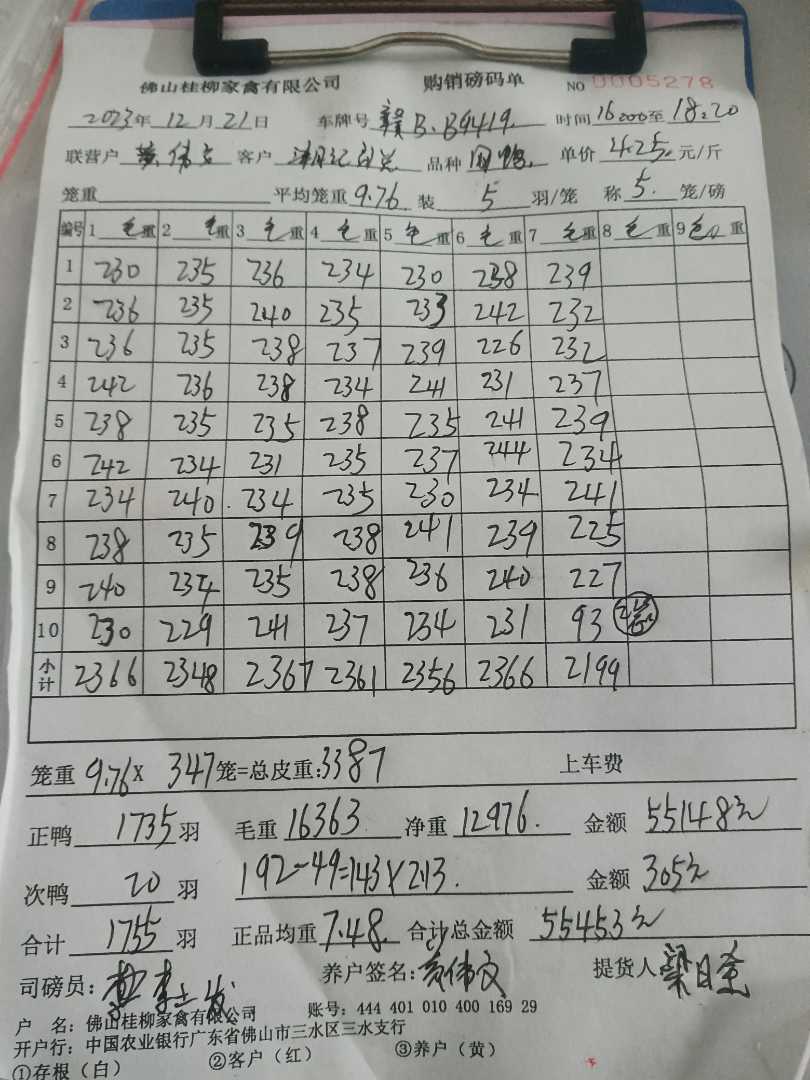 佛山桂柳家禽有限公司 购销磅码单 NO 0005278
2023年 12月 21日 车牌号 赣B.B9419. 时间 16:00至 18:20
联营户 黄伟文 客户 品种 单价 4.25.元/斤
笼重 平均笼重 9.76 装 5 羽/笼 称 5. 笼/磅
编号 1 毛重 2 毛重 3 毛重 4 毛重 5 毛重 6 毛重 7 毛重 8 毛重 9 重
1 230 235 236 234 230 238 239
2 236 235 240 235 233 242 232
3 236 235 238 237 239 226 232
4 242 236 238 234 241 231 237
5 238 235 235 238 235 241 239
6 242 234 231 235 237 244 234
7 234 240 234 235 230 234 241
8 238 235 239 238 241 239 225
9 240 234 235 238 236 240 227
10 230 229 241 237 234 231 93 2笼
小计 2366 2348 2367 2361 2356 2366 2199
笼重 9.76 X 347笼=总皮重:3387 上车费
正鸭 1735 羽 毛重 16363 净重 12976. 金额 55148元
次鸭 20 羽 192-49=143×2.13. 金额 305元
合计 1755 羽 正品均重 7.48. 合计总金额 55453元
司磅员: 养户签名: 黄伟文 提货人
户 名: 佛山桂柳家禽有限公司 账号: 444 401 010 400 169 29
开户行: 中国农业银行广东省佛山市三水区三水支行
①存根（白） ②客户（红） ③养户（黄）